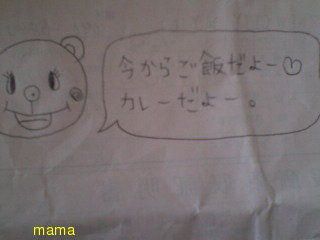 今からご飯だよー♡
カレーだよー。
mama